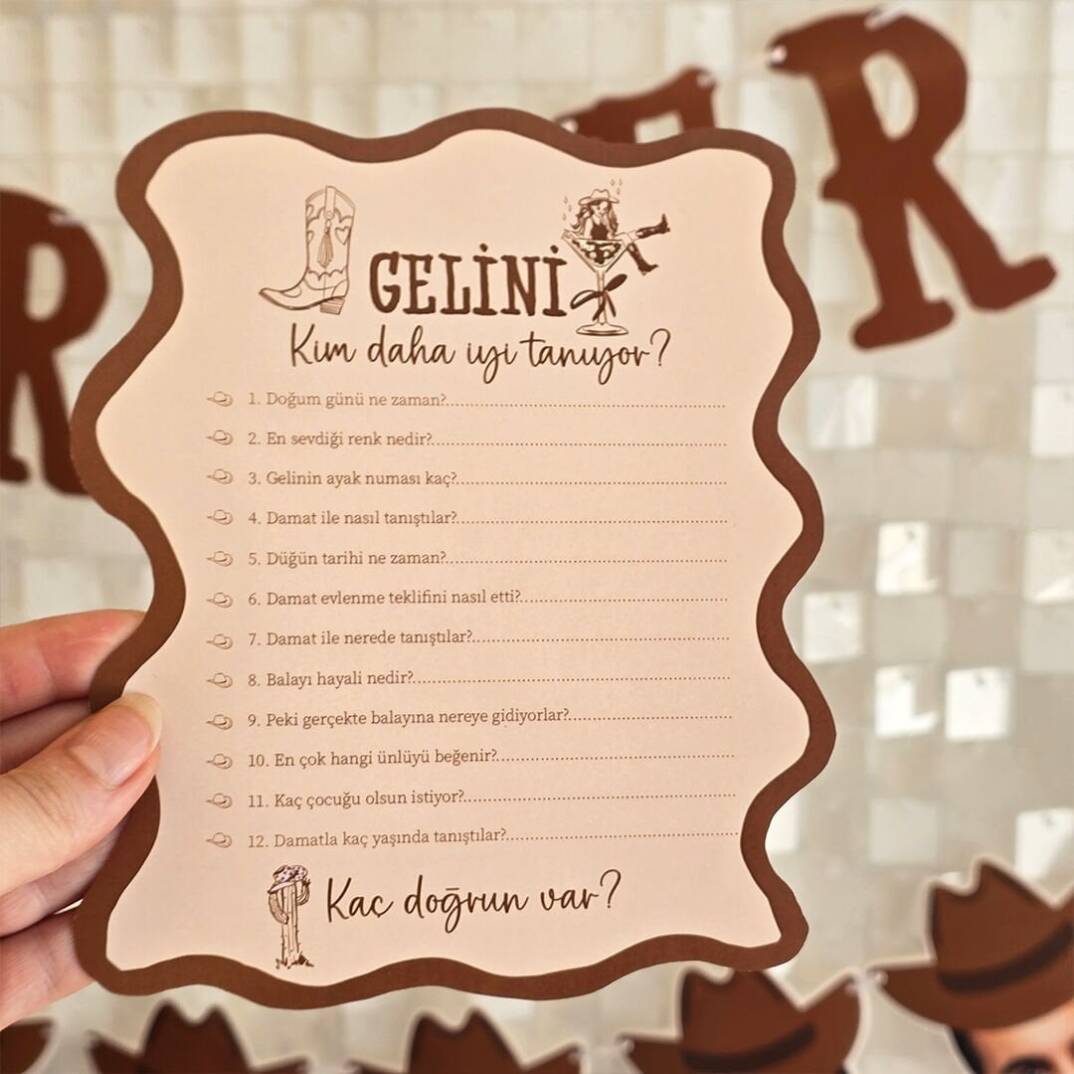 R
R
GELİNİ
Kim daha iyi tanıyor?
1. Doğum günü ne zaman?
2. En sevdiği renk nedir?
3. Gelinin ayak numası kaç?
4. Damat ile nasıl tanıştılar?
5. Düğün tarihi ne zaman?
6. Damat evlenme teklifini nasıl etti?
7. Damat ile nerede tanıştılar?
8. Balayı hayali nedir?
9. Peki gerçekte balayına nereye gidiyorlar?
10. En çok hangi ünlüyü beğenir?
11. Kaç çocuğu olsun istiyor?
12. Damatla kaç yaşında tanıştılar?
Kac doğrun var?